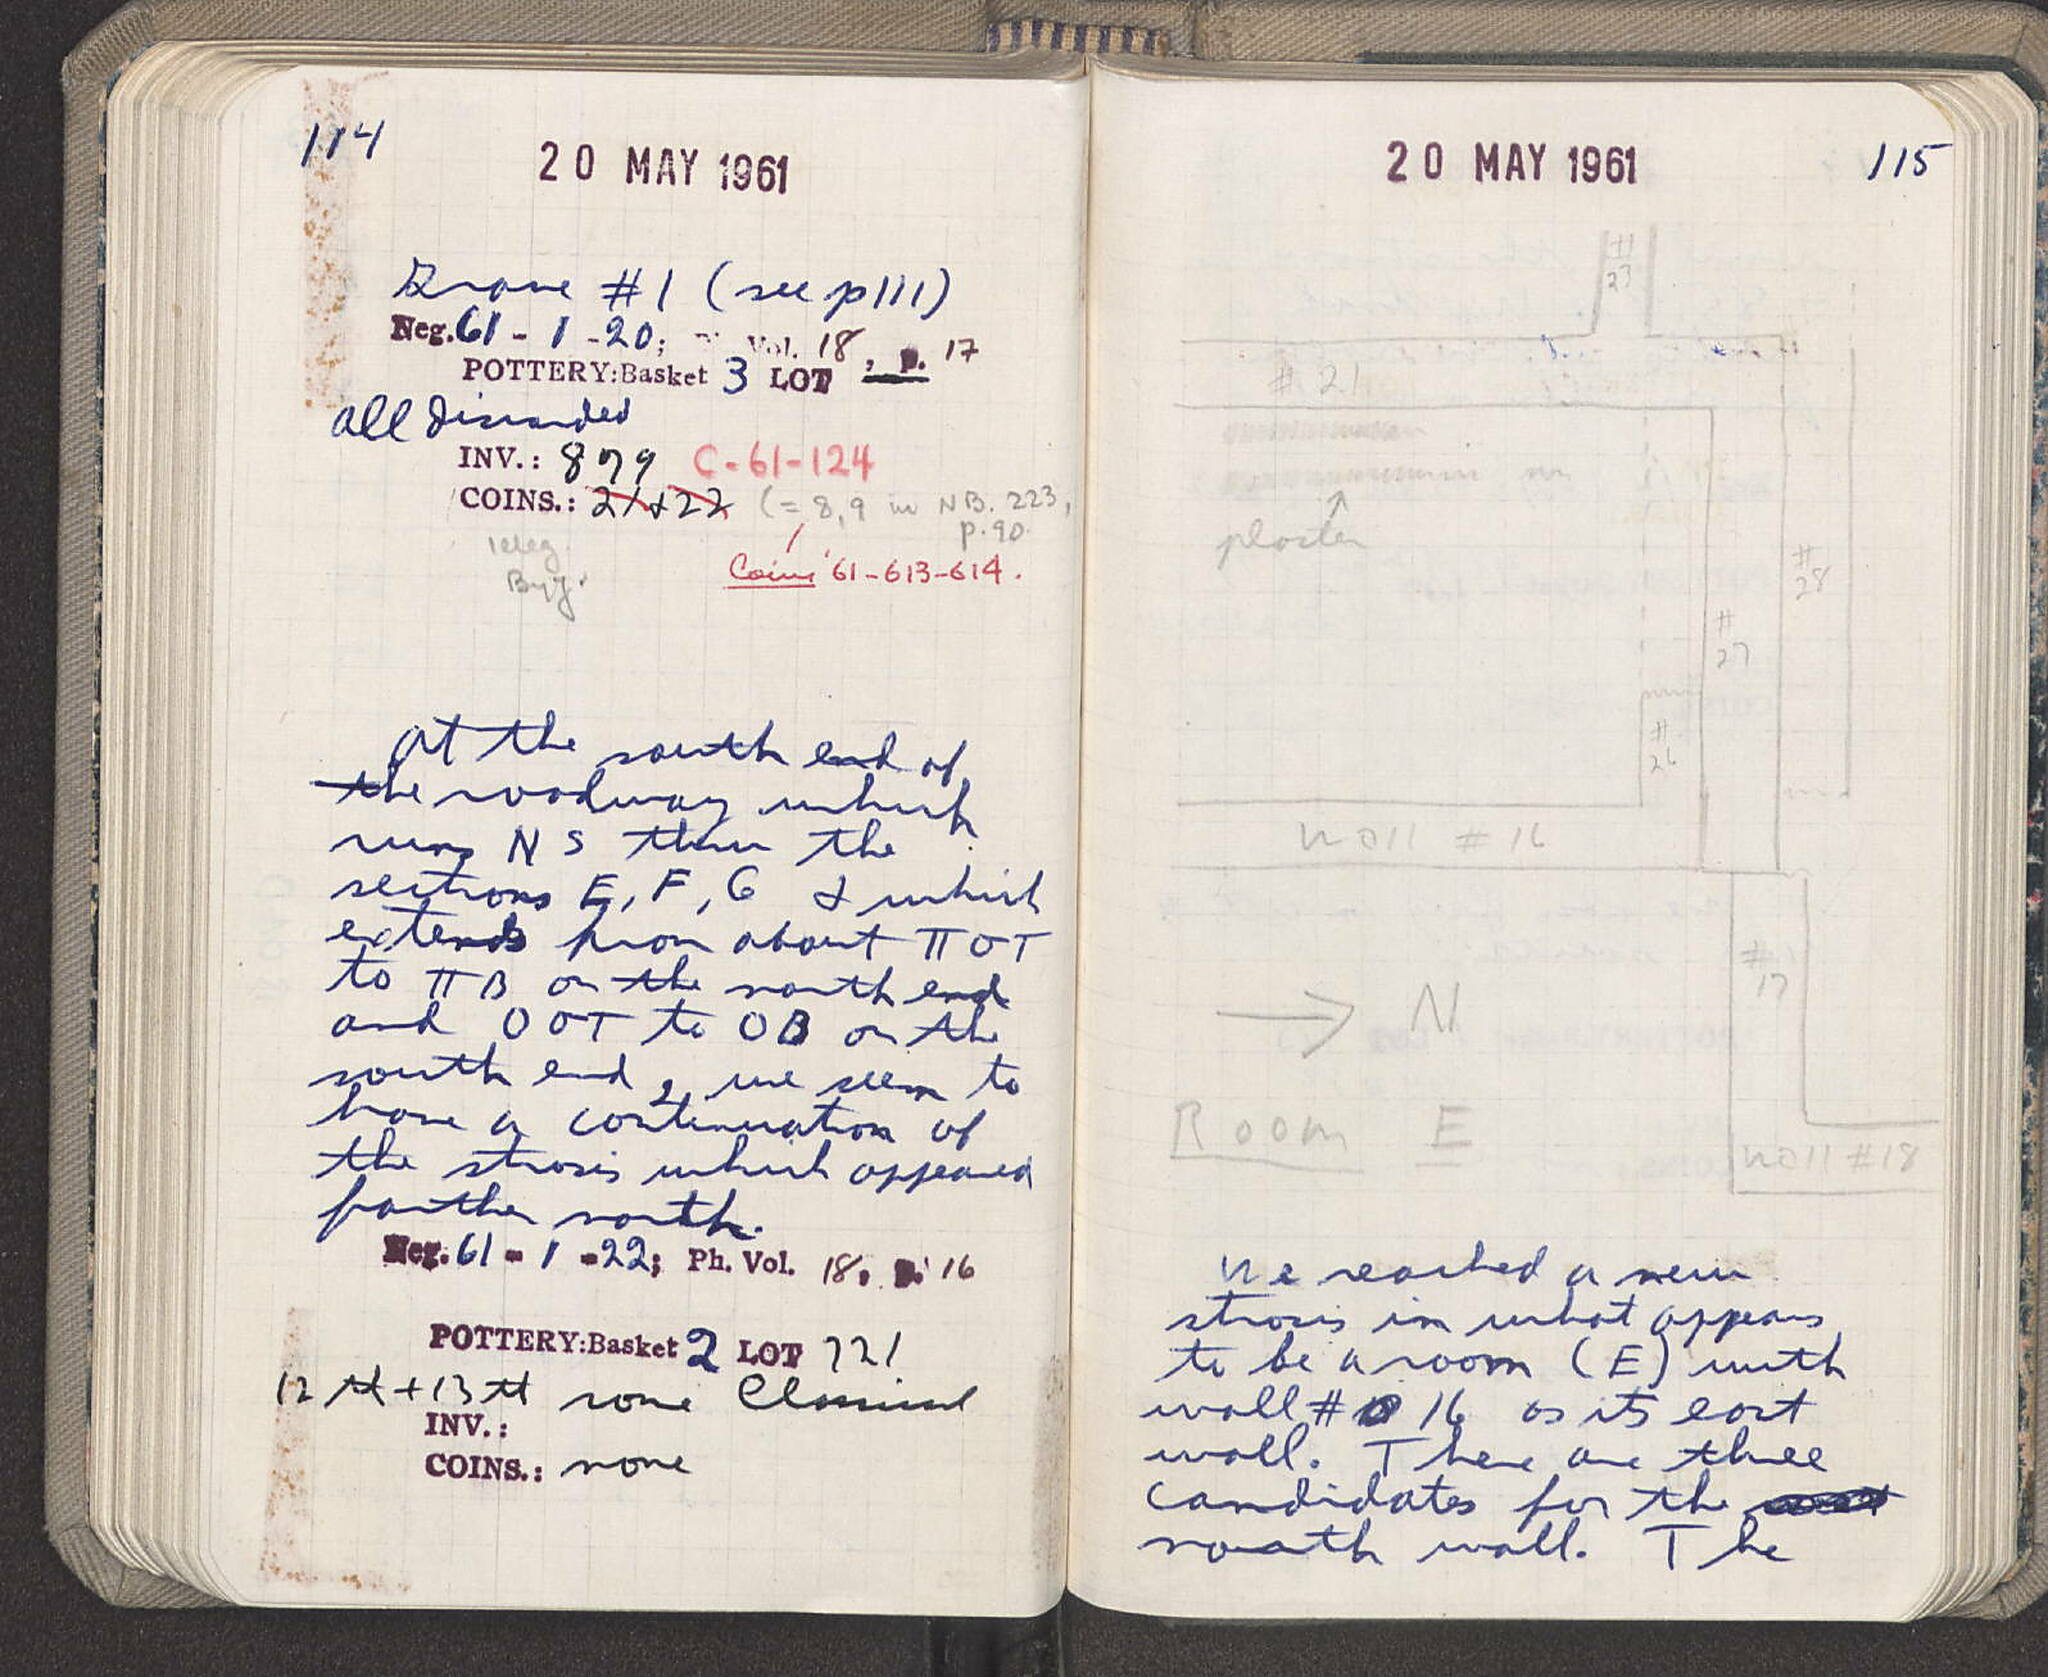 114
20 MAY 1961
Grave #1 (see p111)
Neg. 61 - 1 - 20; Vol. 18, p. 17
POTTERY: Basket 3 LOT
all discarded
INV.: 879 C-61-124
COINS.: 21+22 (= 8,9 in NB. 223,
p.90
illeg.
Byz.
Coins '61-613-614.
At the south end of
the roadway which
runs NS thru the
sections E, F, G & which
extends from about ΠΟΤ
to ΠΒ on the north end
and ΟΟΤ to ΟΒ on the
south end, we seem to
have a continuation of
the strosis which appeared
farther north.
Neg. 61 - 1 - 22; Ph. Vol. 18, p. 16
POTTERY: Basket 2 LOT 721
12th + 13th some Classical
INV.:
COINS.: none
20 MAY 1961
115
#
23
# 21
plaster
#
28
#
27
#
26
Wall # 16
#
17
N
Room E
Wall #18
We reached a new
strosis in what appears
to be a room (E) with
wall # 16 as its east
wall. There are three
candidates for the
north wall. The